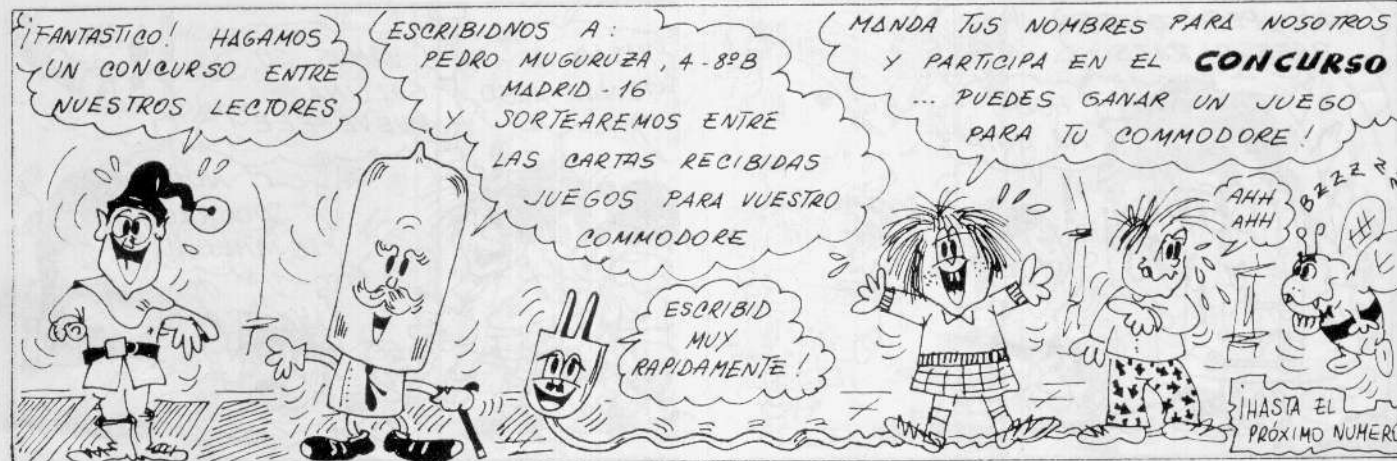 ¡FANTASTICO! HAGAMOS
UN CONCURSO ENTRE
NUESTROS LECTORES
ESCRIBIDNOS A:
PEDRO MUGURUZA, 4-8ºB
MADRID-16
Y SORTEAREMOS ENTRE
LAS CARTAS RECIBIDAS
JUEGOS PARA VUESTRO
COMMODORE
ESCRIBID
MUY
RAPIDAMENTE!
MANDA TUS NOMBRES PARA NOSOTROS
Y PARTICIPA EN EL CONCURSO
... PUEDES GANAR UN JUEGO
PARA TU COMMODORE!
AHH
AHH
BZZZZ
¡HASTA EL
PRÓXIMO NUMERO